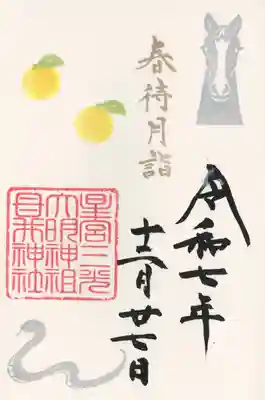 春待月詣
令和七年
十二月廿七日
星宮三光
大明神祖
神社